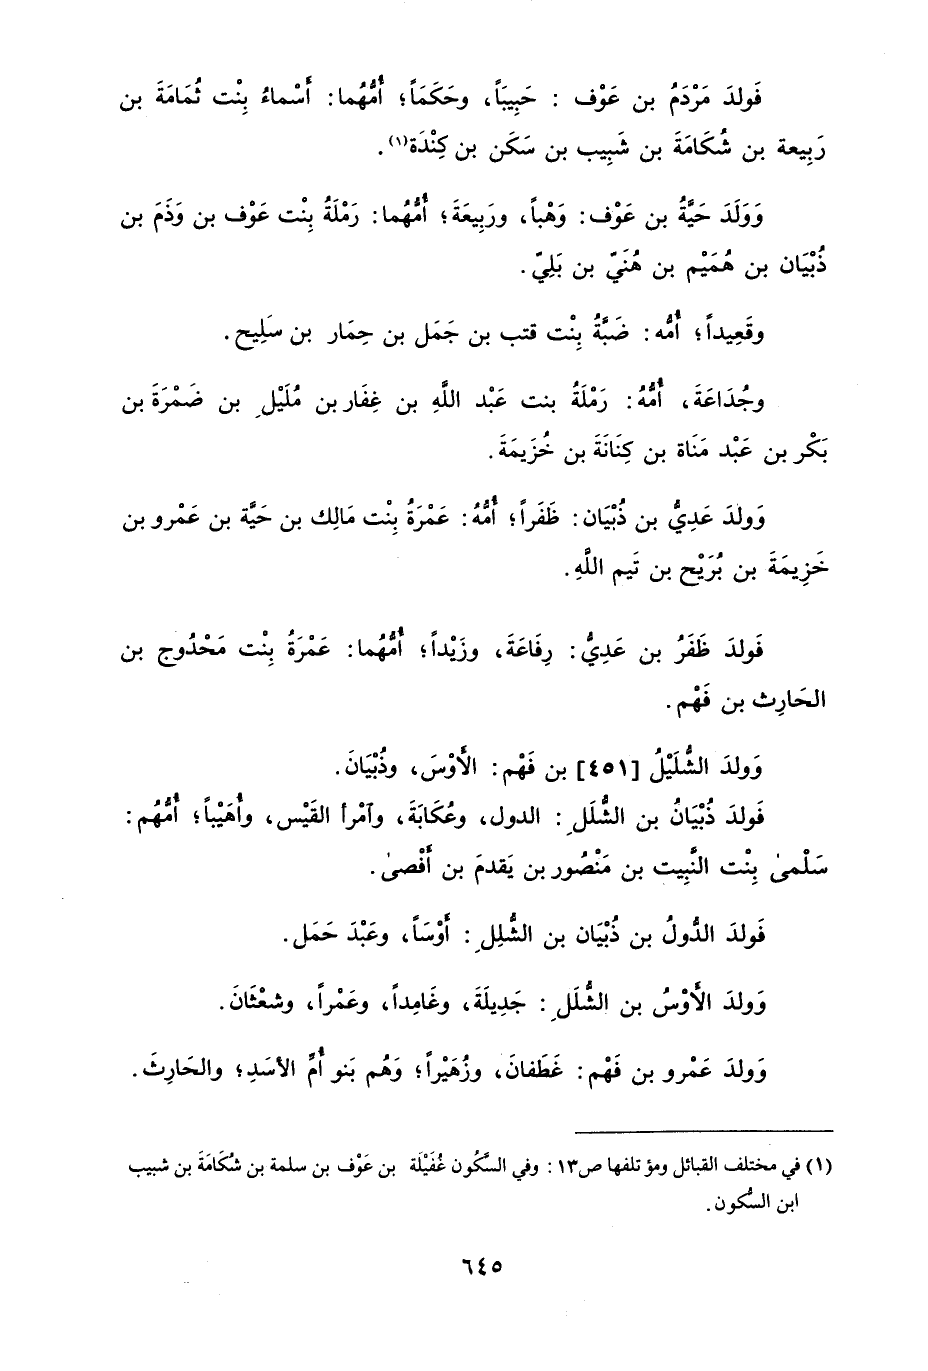 فَولدَ مَرْدَمُ بن عَوْف : حَبِيبَاً، وحَكَمَاً؛ أُمُّهُما: أَسْماءُ بِنْت ثُمَامَةَ بن
رَبِيعة بن شُكَامَةَ بن شَبِيب بن سَكَن بن كِنْدَة(١).
وَوَلَدَ حَيَّةُ بن عَوْف: وَهْباً، ورَبِيعَةَ؛ أُمُّهُما: رَمْلَةُ بِنْت عَوْف بن وَذَمَ بن
ذُبْيَان بن هُمَيْم بن هُنَيّ بن بَلِيّ.
وقَعِيداً؛ أُمُّه: ضَبَّةُ بِنْت قتب بن جَمَل بن حِمَار بن سَلِيح.
وجُدَاعَةَ، أُمُّهُ: رَمْلَةُ بنت عَبْد اللَّهِ بن غِفَار بن مُلَيْلِ بن ضَمْرَةَ بن
بَكْر بن عَبْد مَنَاة بن كِنَانَةَ بن خُزَيمَةَ.
وَولدَ عَدِيُّ بن ذُبْيَان: ظَفَراً؛ أُمُّهُ: عَمْرَةُ بِنْت مَالِك بن حَيَّة بن عَمْرو بن
خَزِيمَةَ بن بُرَيْح بن تَيم اللَّهِ.
فَولدَ ظَفَرُ بن عَدِيُّ: رِفَاعَةَ، وزَيْداً؛ أُمُّهُما: عَمْرَةُ بِنْت مَحْدُوج بن
الحَارِث بن فَهْم.
وَولدَ الشُّلَيْلُ [٤٥١] بن فَهْم: الأَوْسَ، وذُبْيَانَ.
فَولدَ ذُبْيَانُ بن الشُّلَلِ: الدول، وعُكَابَةَ، وآمْرأ القَيْس، وأُهَيْباً؛ أُمُّهُم:
سَلْمىٰ بِنْت النَّبِيت بن مَنْصُور بن يَقدمَ بن أَفْصىٰ.
فَولدَ الدُّولُ بن ذُبْيَان بن الشُّلِلِ: أَوْسَاً، وعَبْدَ حَمَل.
وَولدَ الأَوْسُ بن الشُّلَلِ: جَدِيلَةَ، وغَامِداً، وعَمْراً، وشعْثَانَ.
وَولدَ عَمْرو بن فَهْم: غَطَفانَ، وزُهَيْراً؛ وَهُم بَنو أُمِّ الأسَدِ؛ والحَارِثَ.
(١) في مختلف القبائل ومؤتلفها ص١٣: وفي السَّكُون غُفَيْلَة بن عَوْف بن سلمة بن شُكَامَةَ بن شبيب
ابن السكُون.
٦٤٥